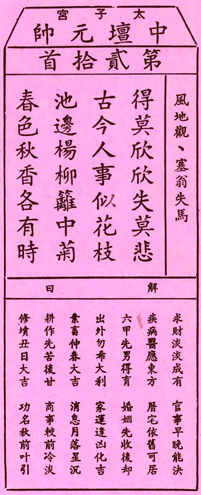 太子宮
中壇元帥
第貳拾首
風地觀、塞翁失馬
得莫欣欣失莫悲
古今人事似花枝
池邊楊柳籬中菊
春色秋香各有時
解曰
求財淡淡成有 官事早晚能決
疾病醫應東方 厝宅依舊可居
六甲先男得育 婚姻先收後却
出外勿希大利 家運逢凶化吉
素畜仲春大吉 消息月落星沉
耕作先苦後甘 商事較前冷淡
修墳丑日大吉 功名秋前叶引